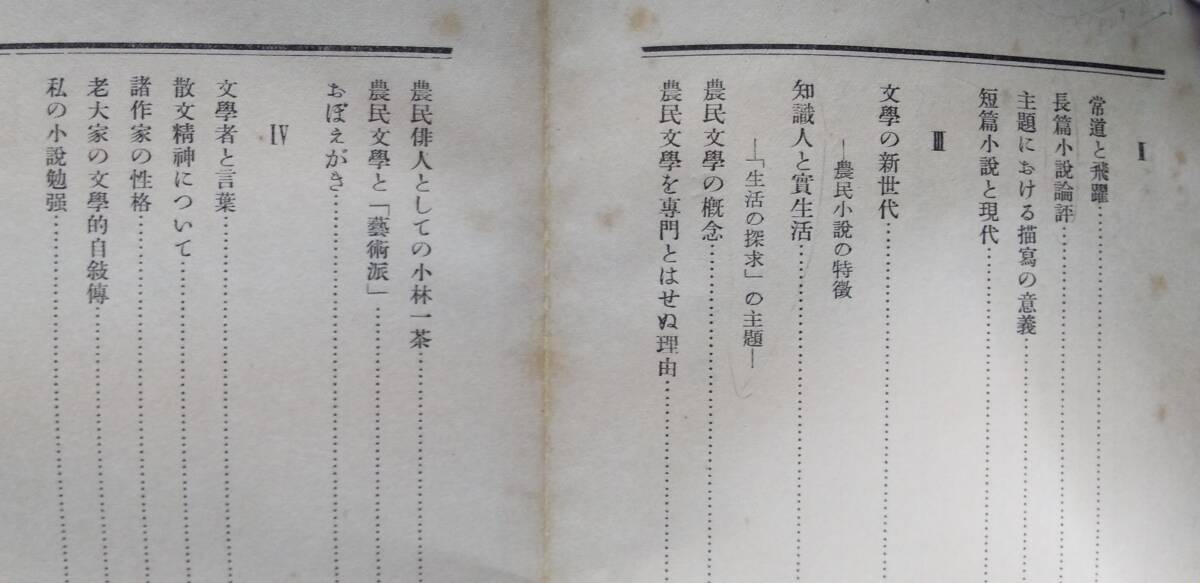 II
常道と飛躍
長篇小說論評
主題における描寫の意義
短篇小說と現代
III
文學の新世代
―農民小說の特徵
知識人と實生活
―「生活の探求」の主題―
農民文學の概念
農民文學を專門とはせぬ理由
農民俳人としての小林一茶
農民文學と「藝術派」
おぼえがき
IV
文學者と言葉
散文精神について
諸作家の性格
老大家の文學的自敍傳
私の小說勉强